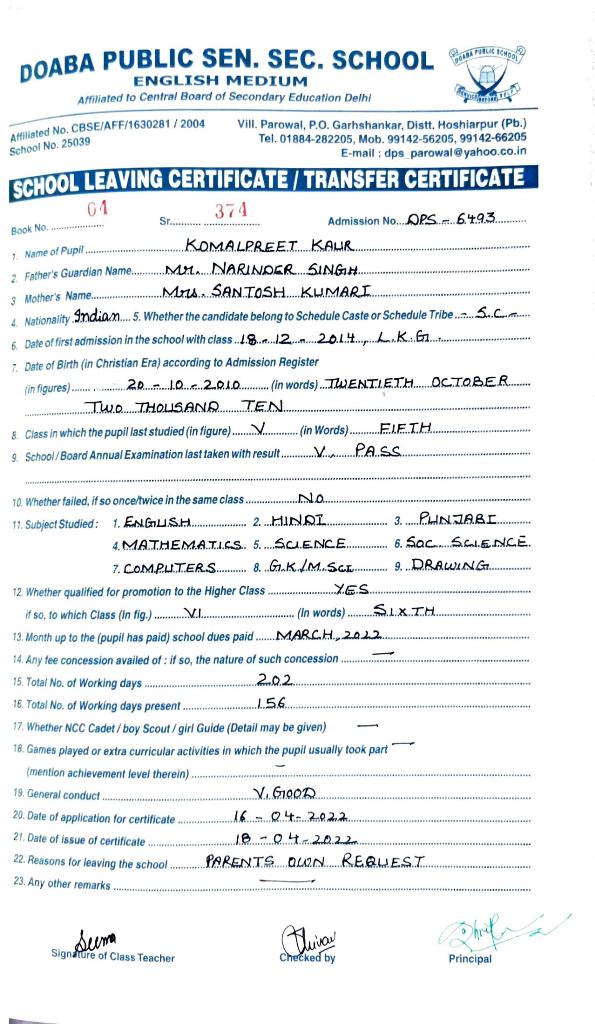 DOABA PUBLIC SEN. SEC. SCHOOL
DOABA PUBLIC SCHOOL
ENGLISH MEDIUM
Affiliated to Central Board of Secondary Education Delhi
Affiliated No. CBSE/AFF/1630281 / 2004
School No. 25039
Vill. Parowal, P.O. Garhshankar, Distt. Hoshiarpur (Pb.)
Tel. 01884-282205, Mob. 99142-56205, 99142-66205
E-mail : dps_parowal@yahoo.co.in
SCHOOL LEAVING CERTIFICATE / TRANSFER CERTIFICATE
Book No. 04 Sr. 374 Admission No. DPS - 6493
1. Name of Pupil KOMALPREET KAUR
2. Father's Guardian Name Mr. NARINDER SINGH
3 Mother's Name Mrs. SANTOSH KUMARI
4. Nationality Indian 5. Whether the candidate belong to Schedule Caste or Schedule Tribe - S.C -
6. Date of first admission in the school with class 18 - 12 - 2014, L.K.G.
7. Date of Birth (in Christian Era) according to Admission Register
(in figures) 20 - 10 - 2010 (in words) TWENTIETH OCTOBER
TWO THOUSAND TEN
8. Class in which the pupil last studied (in figure) V (in Words) FIFTH
9. School / Board Annual Examination last taken with result V, PASS
10. Whether failed, if so once/twice in the same class NO
11. Subject Studied : 1. ENGLISH 2. HINDI 3. PUNJABI
4. MATHEMATICS 5. SCIENCE 6. SOC. SCIENCE
7. COMPUTERS 8. G.K/M.SCI 9. DRAWING
12. Whether qualified for promotion to the Higher Class YES
if so, to which Class (In fig.) VI (In words) SIXTH
13. Month up to the (pupil has paid) school dues paid MARCH, 2022
14. Any fee concession availed of : if so, the nature of such concession —
15. Total No. of Working days 202
16. Total No. of Working days present 156
17. Whether NCC Cadet / boy Scout / girl Guide (Detail may be given) —
18. Games played or extra curricular activities in which the pupil usually took part —
(mention achievement level therein) -
19. General conduct V. GOOD
20. Date of application for certificate 16 - 04 - 2022
21. Date of issue of certificate 18 - 04 - 2022
22. Reasons for leaving the school PARENTS OWN REQUEST
23. Any other remarks —
Seema
Signature of Class Teacher
Checked by
Principal